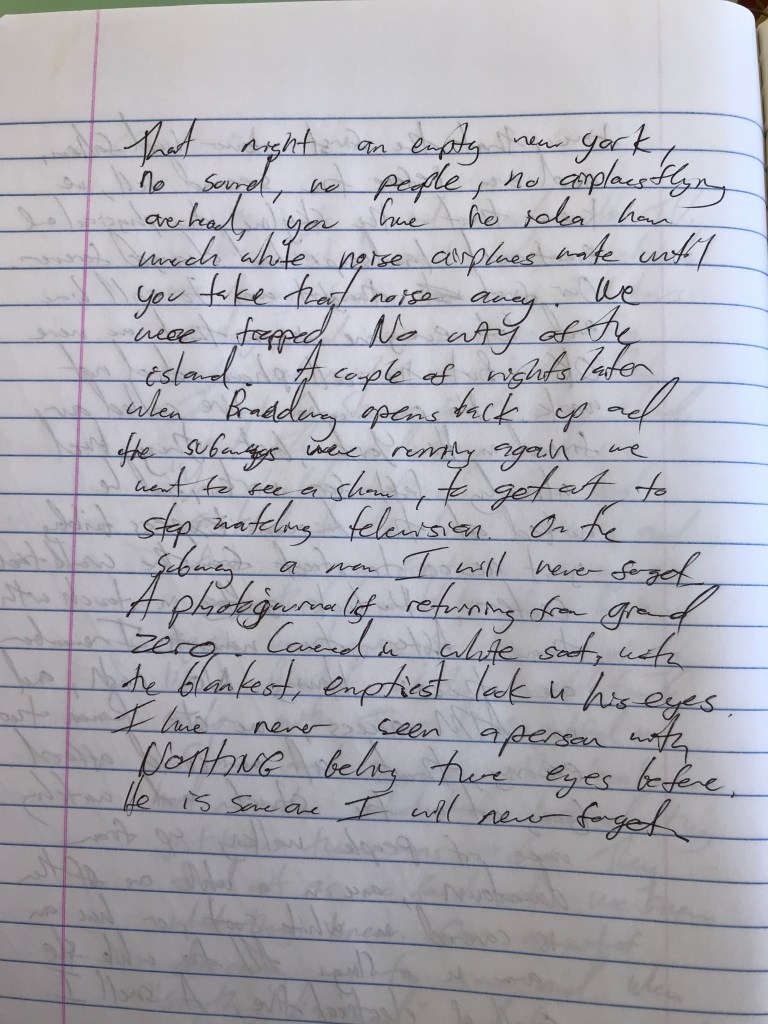 That night an empty new york,
no sound, no people, no airplaes flying
overhead, you have no idea how
much white noise airplaes make until
you take that noise away. We
were trapped. No way of the
island. A couple of nights later
when Broadway opens back up ad
the subways were running again we
went to see a show, to get out to
stop watching television. On the
Subway a man I will never forget
A photojournalist returning from ground
zero. Covered in white soot, with
the blankest, emptiest look in his eyes.
I have never seen a person with
NOTHING behing eyes before.
He is someone I will never forget